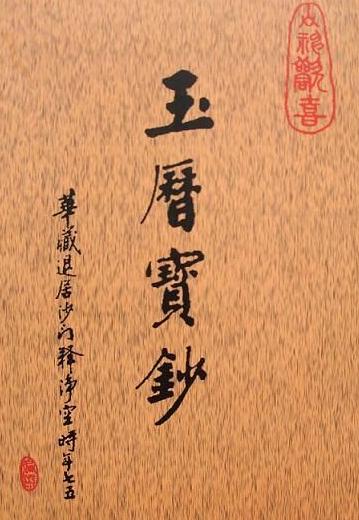 歡喜
玉曆寶鈔
華藏退居沙门釋淨空時年七五